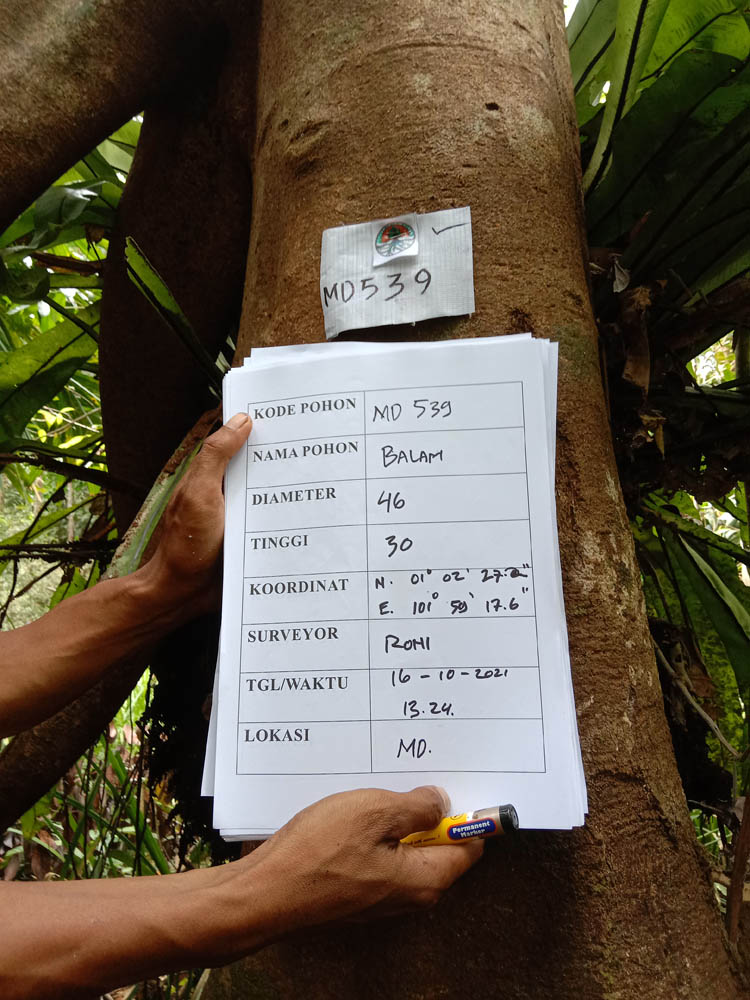 MD539
KODE POHON MD 539
NAMA POHON BALAM
DIAMETER 46
TINGGI 30
KOORDINAT N. 01° 02' 27.2"
E. 101° 59' 17.6"
SURVEYOR ROMI
TGL/WAKTU 16 - 10 - 2021
13.24.
LOKASI MD.
Permanent
Marker